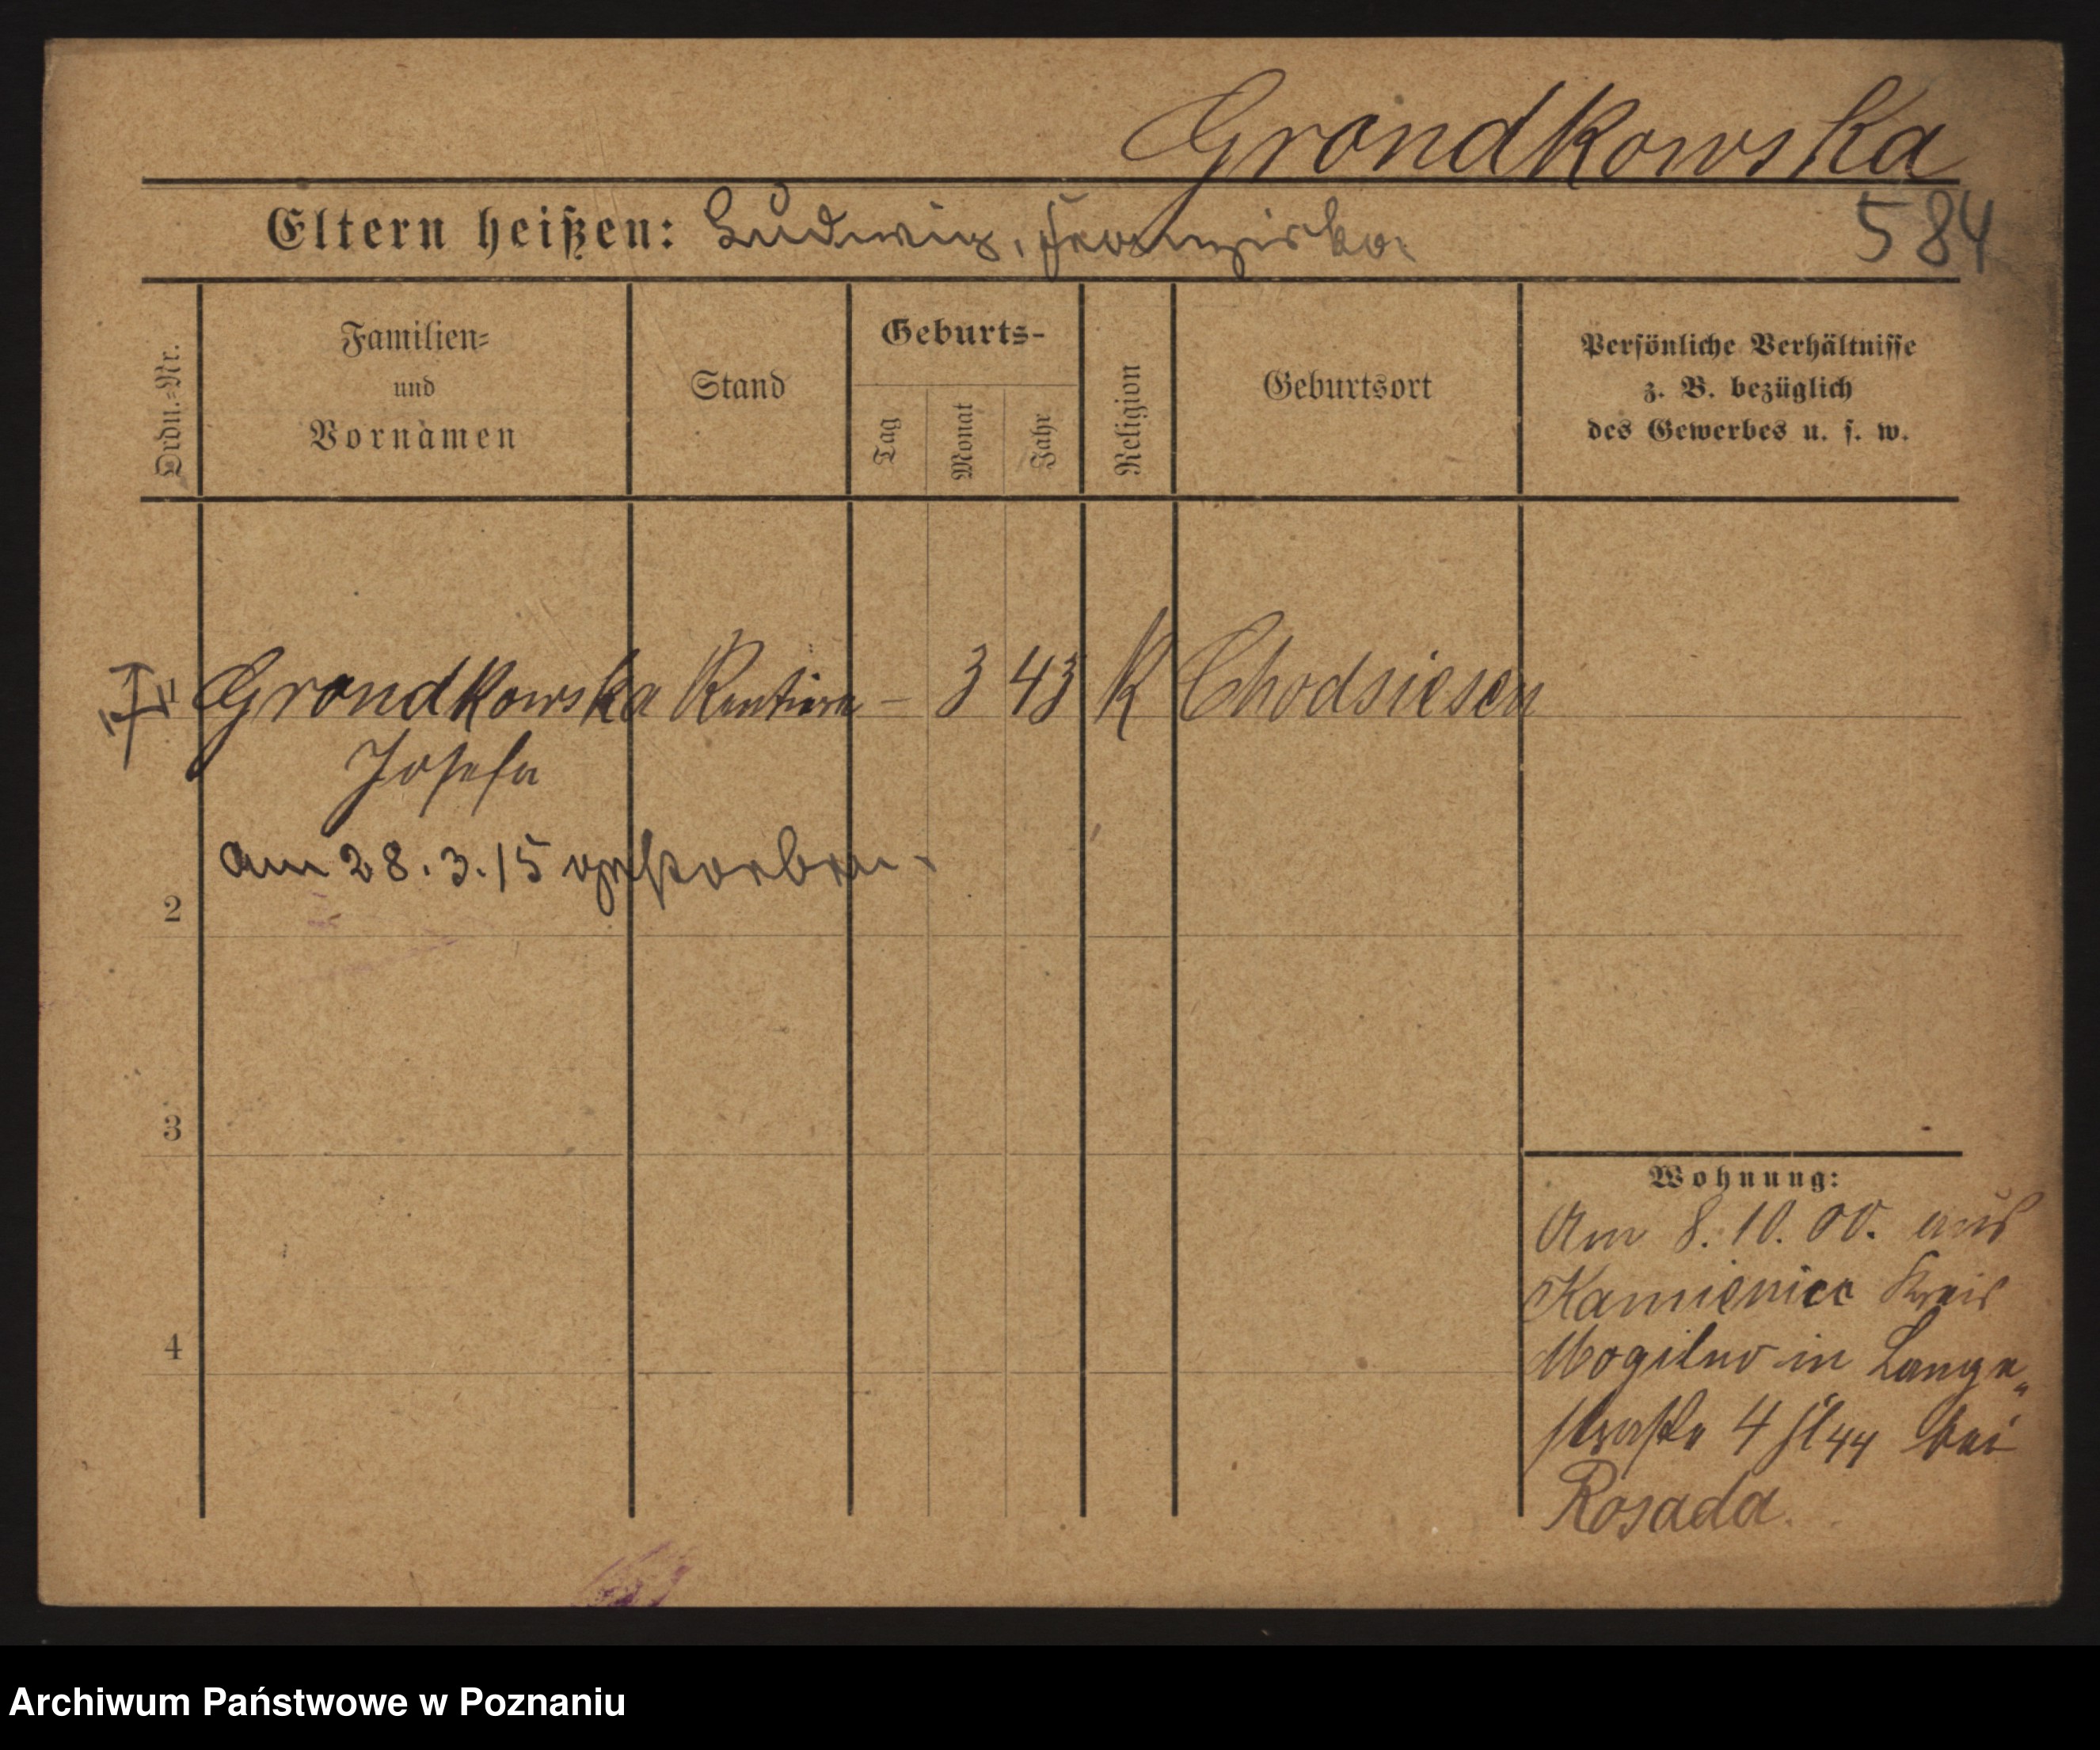 Grondkowska
Eltern heißen: Ludwig, Franziska
584
Ordn.-Nr.
Familien-
und
Vornamen
Stand
Geburts-
Tag
Monat
Jahr
Religion
Geburtsort
Persönliche Verhältnisse
z. B. bezüglich
des Gewerbes u. s. w.
1 Grondkowska Rentiere – 3 43 K Chodsiesen
Josefa
am 28.3.15 verstorben.
2
3
4
Wohnung:
Am 8.10.00. aus
Kamieniec Kreis
Mogilno in Lange„
straße 4 bei
Rosada.
Archiwum Państwowe w Poznaniu